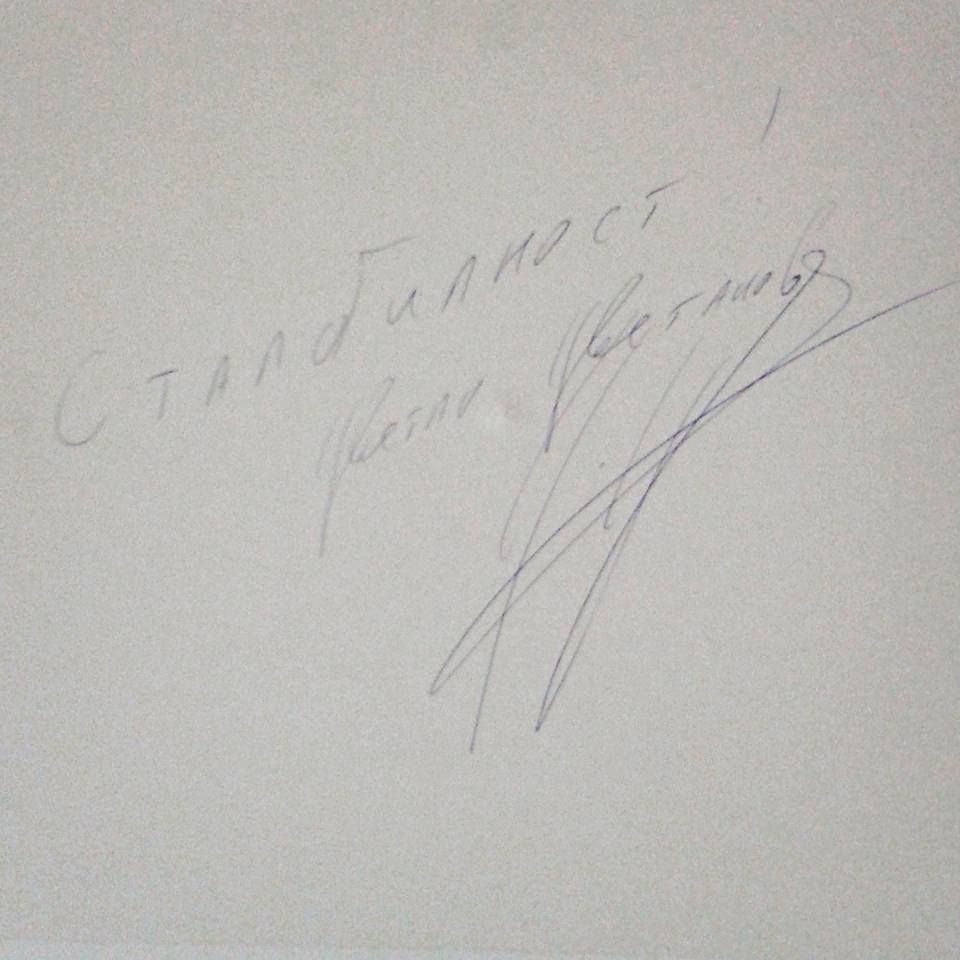 Сталбилност!
Цветан Цветанов